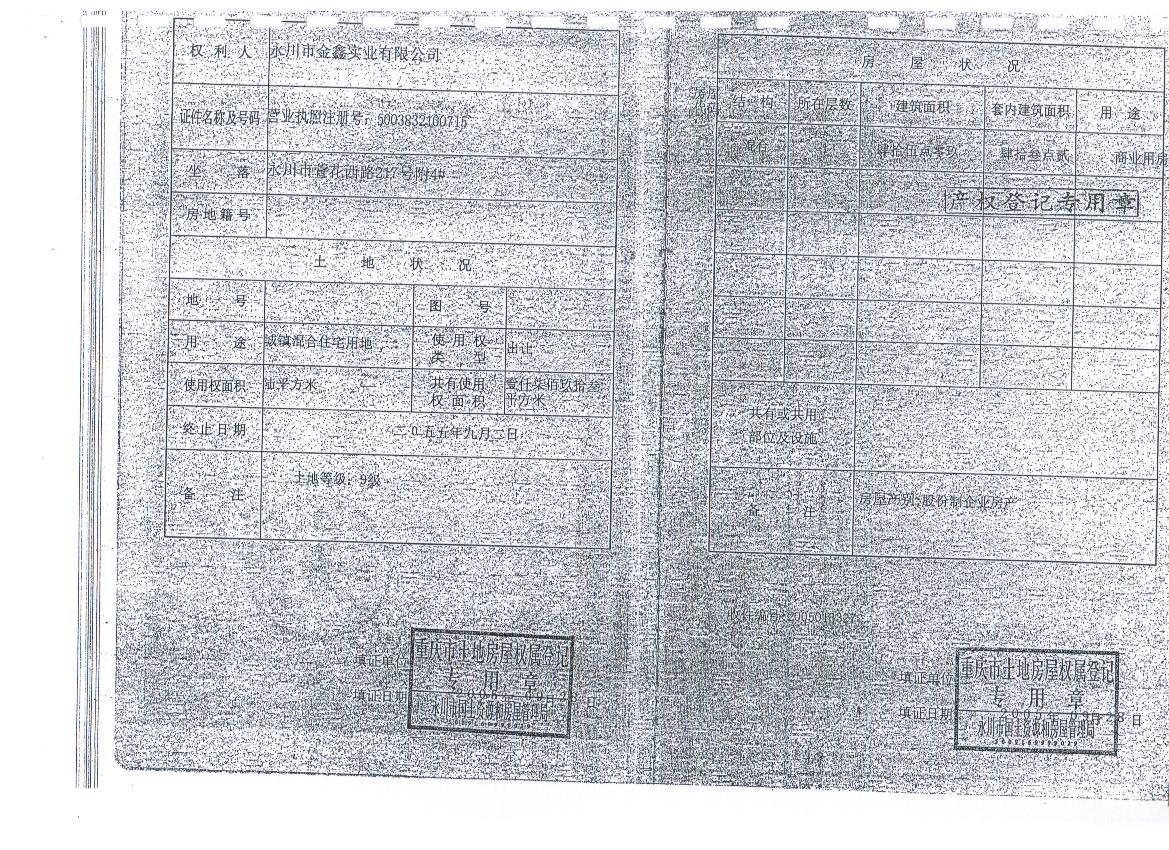 权利人 永川市金鑫实业有限公司
证件名称及号码 营业执照注册号:5003832100715
坐落 永川市萱花西路217号附4#
房地籍号
土地状况
地号 图号
用途 城镇混合住宅用地 使用权类型 出让
使用权面积 陆平方米 共有使用权面积 壹仟柒佰玖拾叁平方米
终止日期 二0五五年九月二日
备注 土地等级:9级
填证单位
填证日期
重庆市土地房屋权属登记
专用章
永川市国土资源和房屋管理局
房屋状况
结构 所在层数 建筑面积 套内建筑面积 用途
肆拾伍点零玖 肆拾叁点贰 商业用房
产权登记专用章
共有或共用
部位及设施
备注 房屋产别:股份制企业房产
填证单位
填证日期
重庆市土地房屋权属登记
专用章
永川市国土资源和房屋管理局
28日